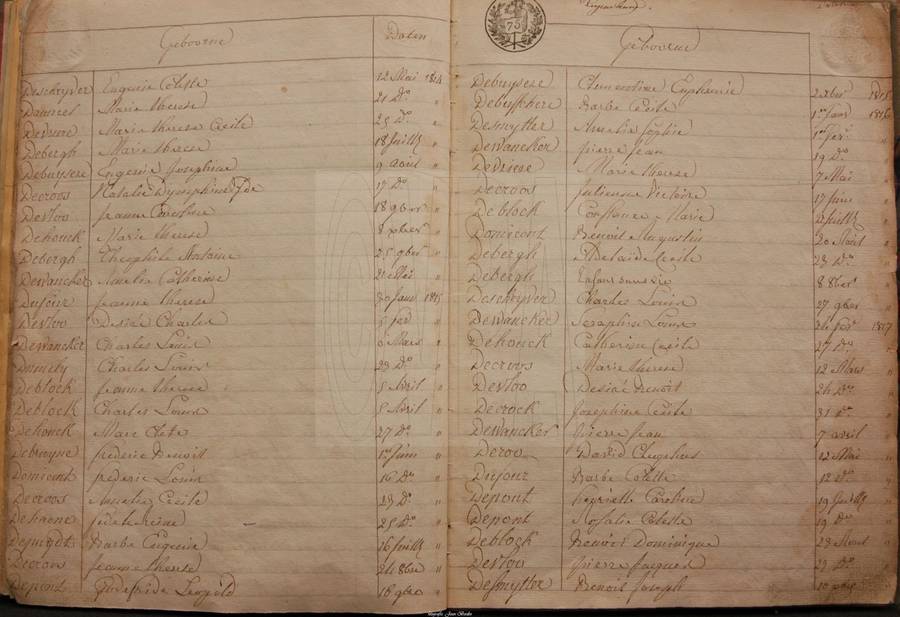 Geboorne Daten
Deschryver Eugenie Colette 12 Mai 1814
Marie Therese 21 Do "
Marie Therese Cecile 25 Do "
Debergh Marie Therese 18 Juillt "
Debuysere Eugenie Josephine 9 Août "
Decroos Natalie 17 Do "
Desloo Jeanne 18 9ber "
Dehouck Marie Therese 8 "
Debergh Théophile Antoine 25 9ber "
Dewancker Amelie Catherine
Dufour Jeanne Therese 30 Janv 1815
Desloo Désiré Charles 5 fev "
Dewancker Charles Louis 6 Mars "
Charles Louis 29 Do "
Deblock Jeanne Therese 5 Avril "
Deblock Charles Louis 5 Avril "
Dehouck Marc 27 Do "
Debruyne frederic Benoit 1er Juin "
Domicent frederic Louis 16 Do "
Decroos Amelie Cecile 23 Do "
Dehaene 25 Do "
Barbe Eugenie 16 Juillt "
Decroos Jeanne Therese 24 8bre "
Depont Leopold 16 9bre "
75
Geboorne
Debuysere Clementine Euphemie 2 xber 1815
Debusschere Barbe Cecile 1er Janv 1816
Desmytter Amelie Sophie 1er fev "
Dewancker Pierre Jean 19 Do "
Devriese Marie Therese 7 Mai "
Decroos Julienne Victoire 17 Juin "
Deblock Constance Marie Juillt "
Domicent Benoit Augustin 20 Août "
Debergh Adelaïde Cecile 23 Do "
Debergh Enfant sans vie 8 8ber "
Deschryver Charles Louis 27 9ber "
Dewancker Seraphin Louis 24 fev 1817
Dehouck Catherine Cecile 27 Do "
Decroos Marie Therese 12 Mars "
Desloo Desiré Benoit 24 Do "
Decrock Josephine Cecile 31 Do "
Dewancker Pierre Jean 7 avril "
Deroo David 12 Mai "
Dufour Barbe Colette 12 Do "
Depont Henriette Caroline 19 Juillt "
Depont Rosalie Colette 19 Do "
Deblock Benoit Dominique 23 Aout "
Desloo Pierre Jacques 29 Do "
Desmytter Benoit Joseph 10